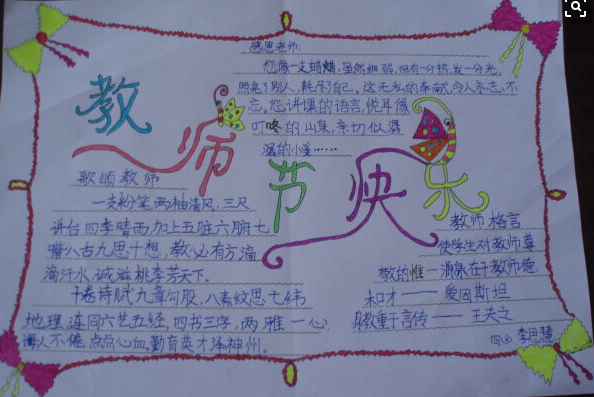 教师节快乐
感恩老师:
您像一支蜡烛,虽然细弱,但有一分热,发一分光,
照亮了别人,耗尽了自己。这无私的奉献,令人永志不
忘。您讲课的语言,悦耳像
叮咚的山泉,亲切似潺
潺的小溪……
歌颂教师
一支粉笔两袖清风,三尺
讲台四季晴雨,加上五脏六腑七
嘴八舌九思十想,教必有方滴
滴汗水诚滋桃李芳天下.
十卷诗赋九章勾股,八索文思七纬
地理,连同六艺五经,四书三字,两雅一心,
诲人不倦,点点心血勤育英才泽神州.
教师格言
使学生对教师尊
敬的惟一源泉在于教师德
和才——爱因斯坦
身教重于言传——王夫之
李思慧